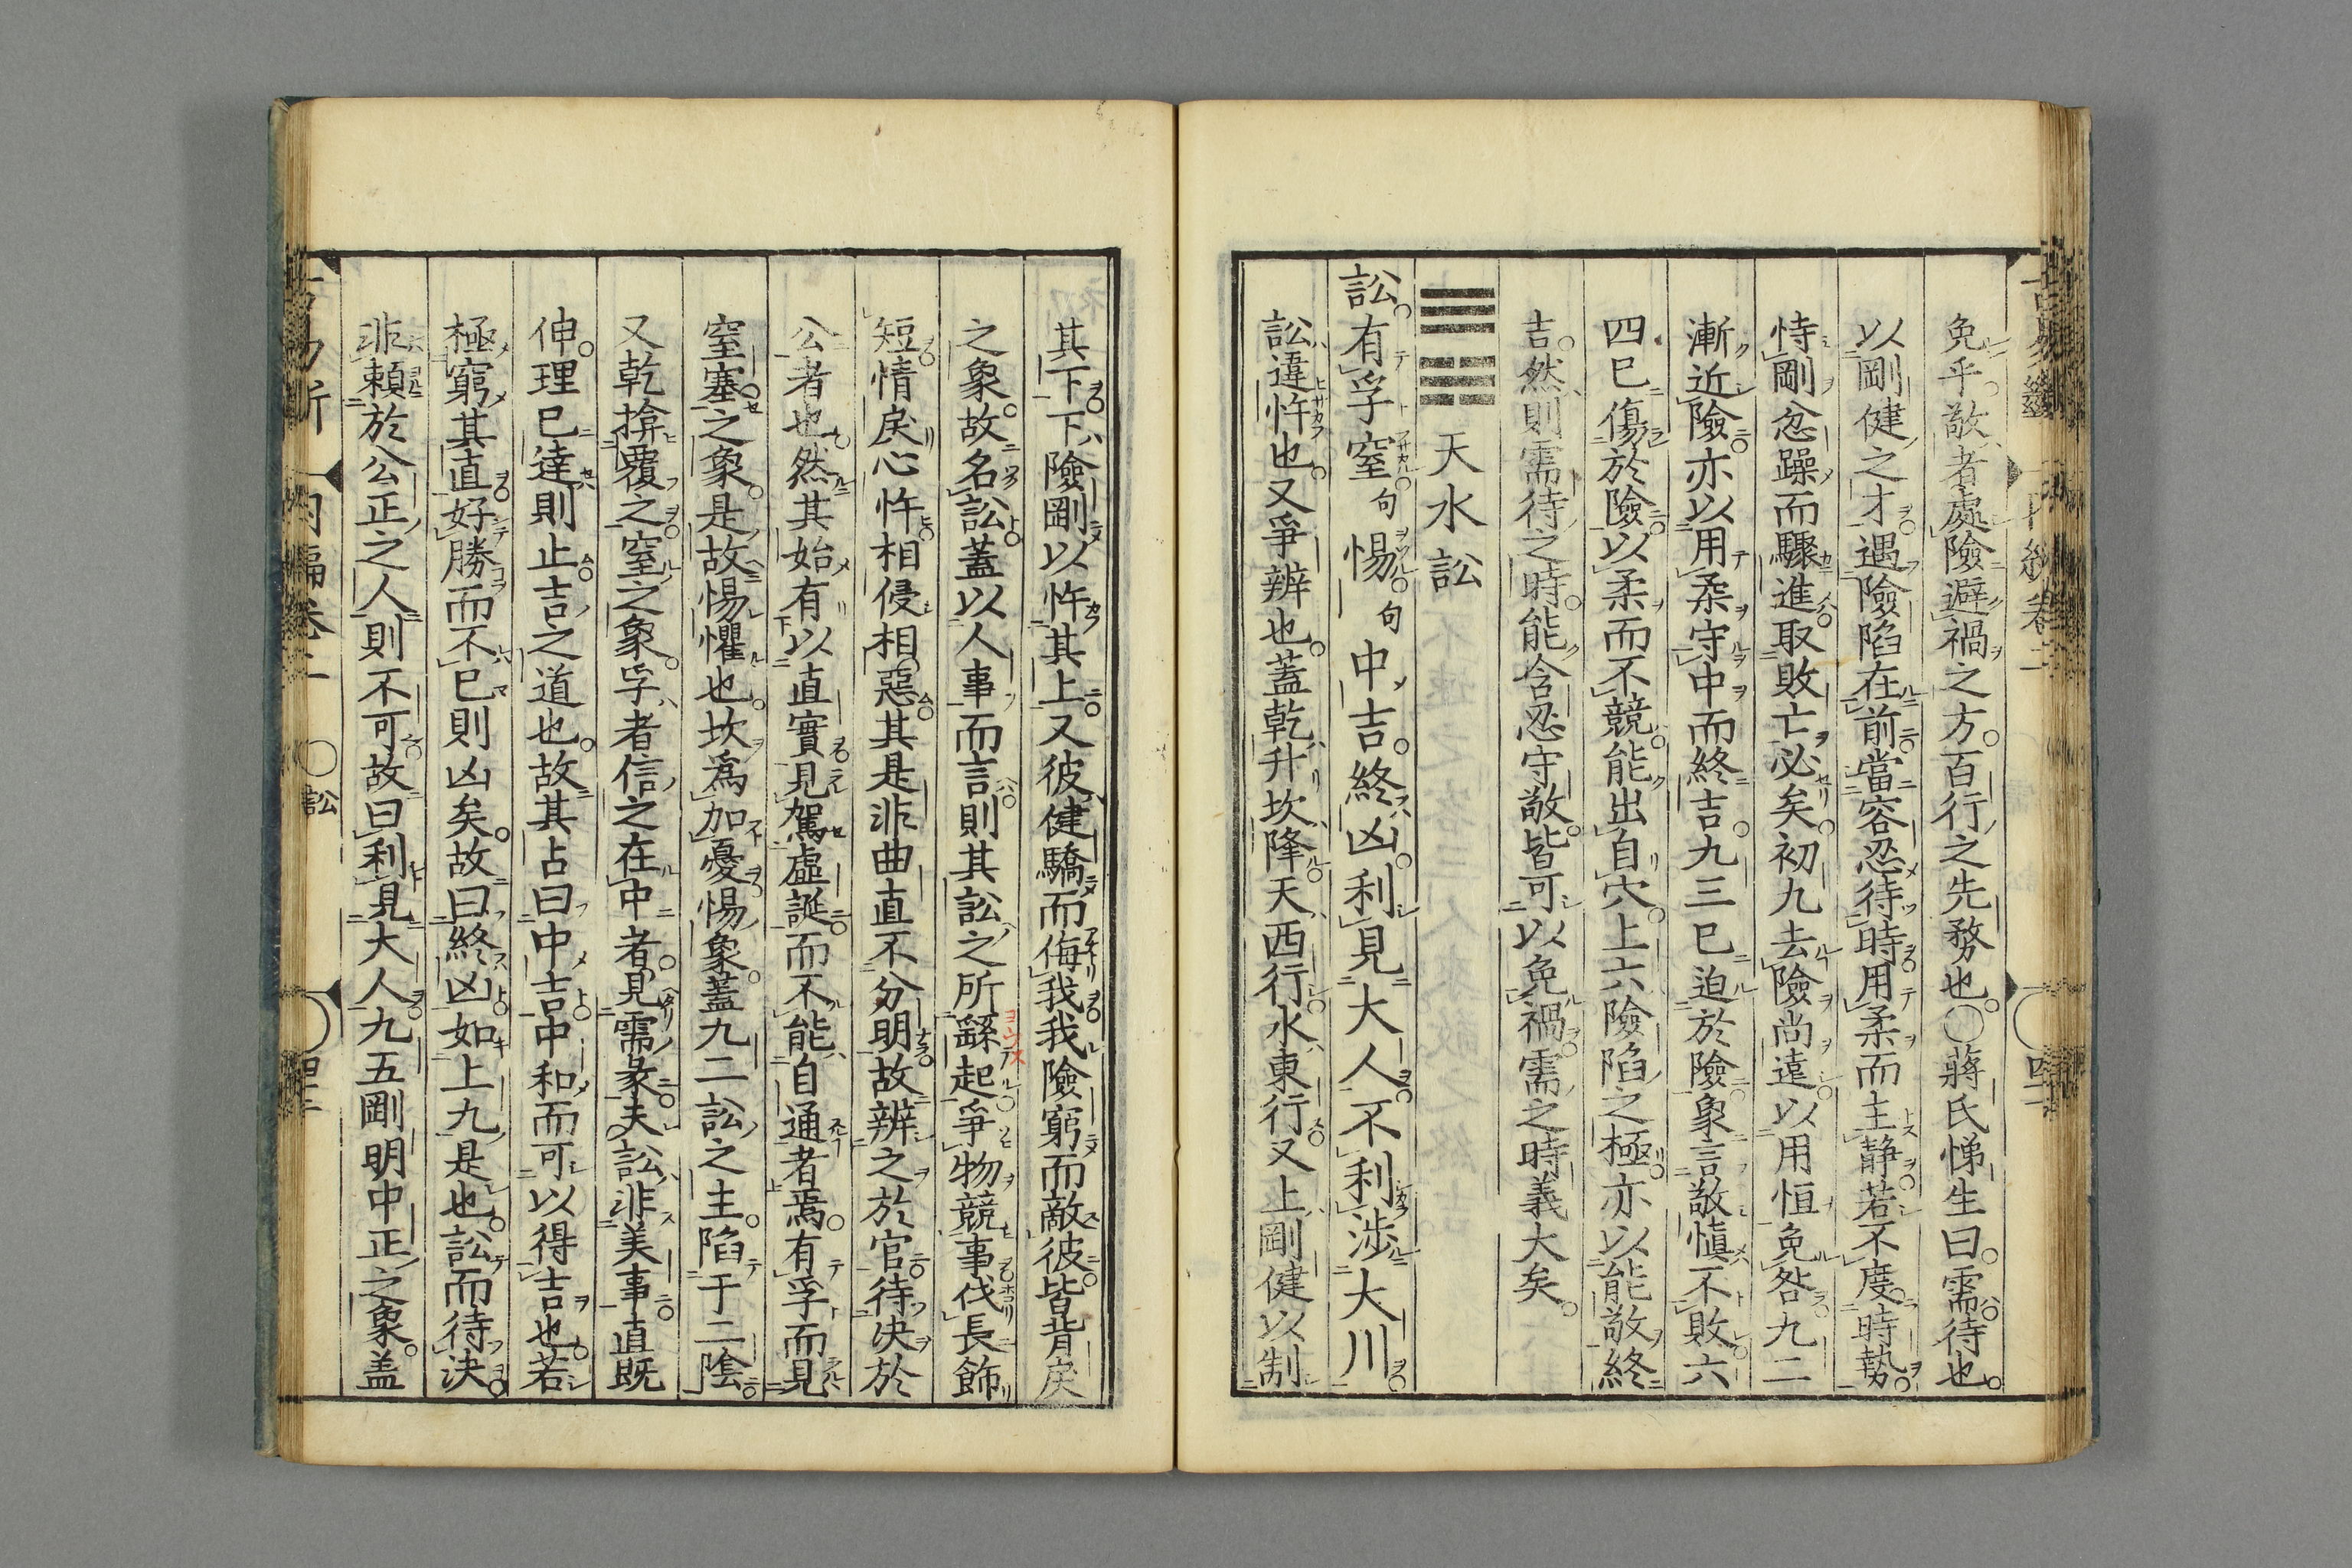 免乎敬者處險避禍之方百行之先務也○蔣氏悌生曰需待也
以剛健之才遇險陷在前當容忍待時用柔而主静若不度時勢
恃剛忿躁而驟進取敗亡必矣初九去險尚遠以用恒免咎九二
漸近險亦以用柔守中而終吉九三已迫於險象言敬愼不敗六
四已傷於險以柔而不競能出自穴上六險陷之極亦以能敬終
吉然則需待之時能含忍守敬皆可以免禍需之時義大矣
天水訟
訟有孚窒句惕句中吉終凶利見大人不利涉大川
訟違忤也又爭辨也蓋乾升坎降天西行水東行又上剛健以制
其下下險剛以忤其上又彼健驕而侮我我險窮而敵彼皆背戾
之象故名訟蓋以人事而言則其訟之所繇起爭物競事伐長飾
短情戾心忤相侵相惡其是非曲直不分明故辨之於官待决於
公者也然其始有以直實見駕虛誕而不能自通者焉有孚而見
窒塞之象是故惕懼也坎爲加憂惕象蓋九二訟之主陷于二陰
又乾揜覆之窒之象孚者信之在中者見需彖夫訟非美事直既
伸理已達則止吉之道也故其占曰中吉中和而可以得吉也若
極窮其直好勝而不已則凶矣故曰終凶如上九是也訟而待决
非頼於公正之人則不可故曰利見大人九五剛明中正之象盖
訟